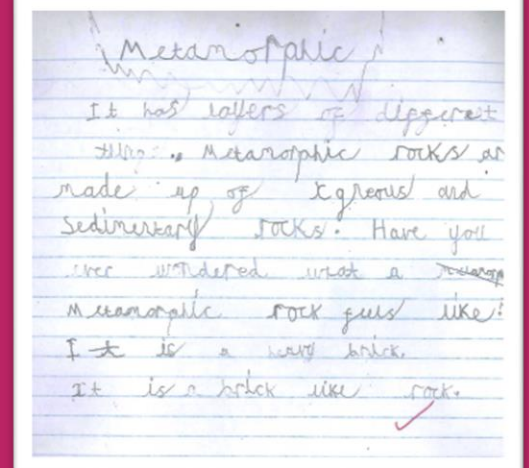 Metamorphic
It has layers of different
thing. Metamorphic rocks ar
made up of Igneous and
Sedimentary rocks. Have you
ever wondered what a
Metamorphic rock feels like?
It is a brick.
It is a brick like rock.